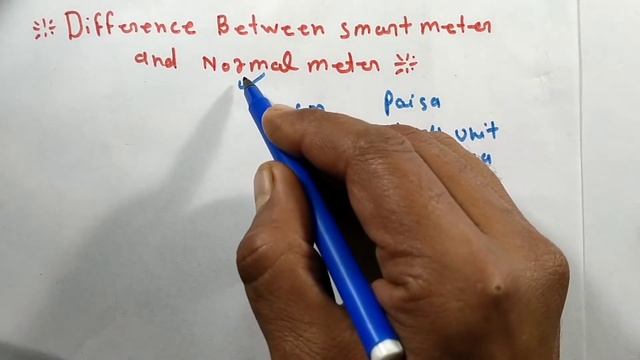 Difference Between smart meter
and Normal meter
Paisa
unit